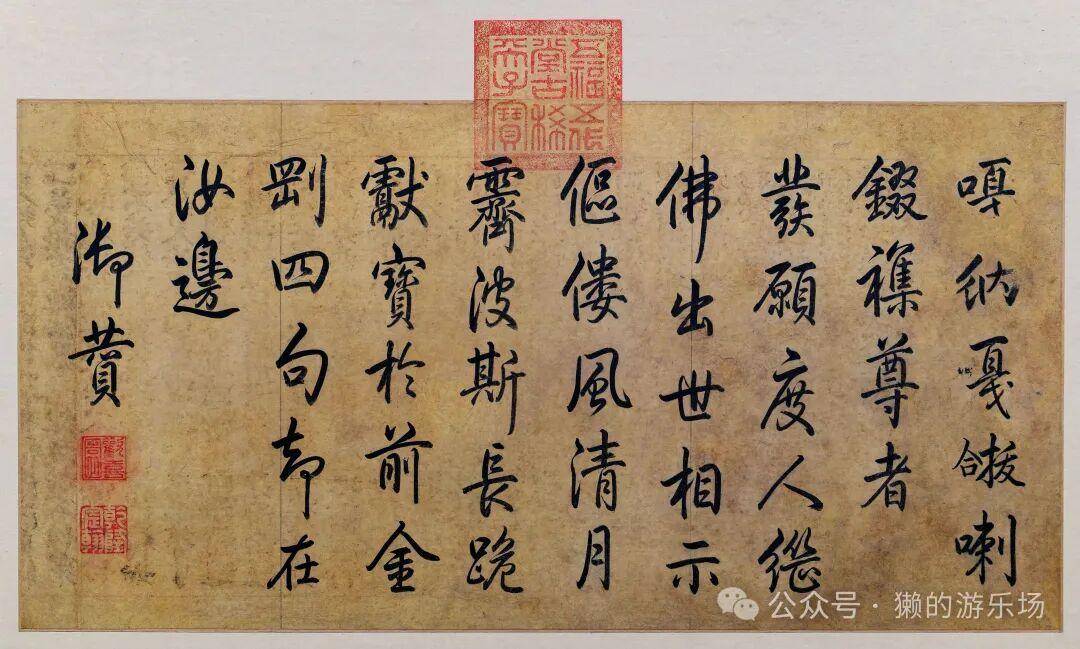 五福五代
堂古稀
天子寶
嘎納戛㗿喇
錣襍尊者
發願度人繼
佛出世相示
傴僂風清月
霽波斯長跪
獻寶於前金
剛四句却在
汝邊
御贊
乾隆
宸翰
公众号·獭的游乐场